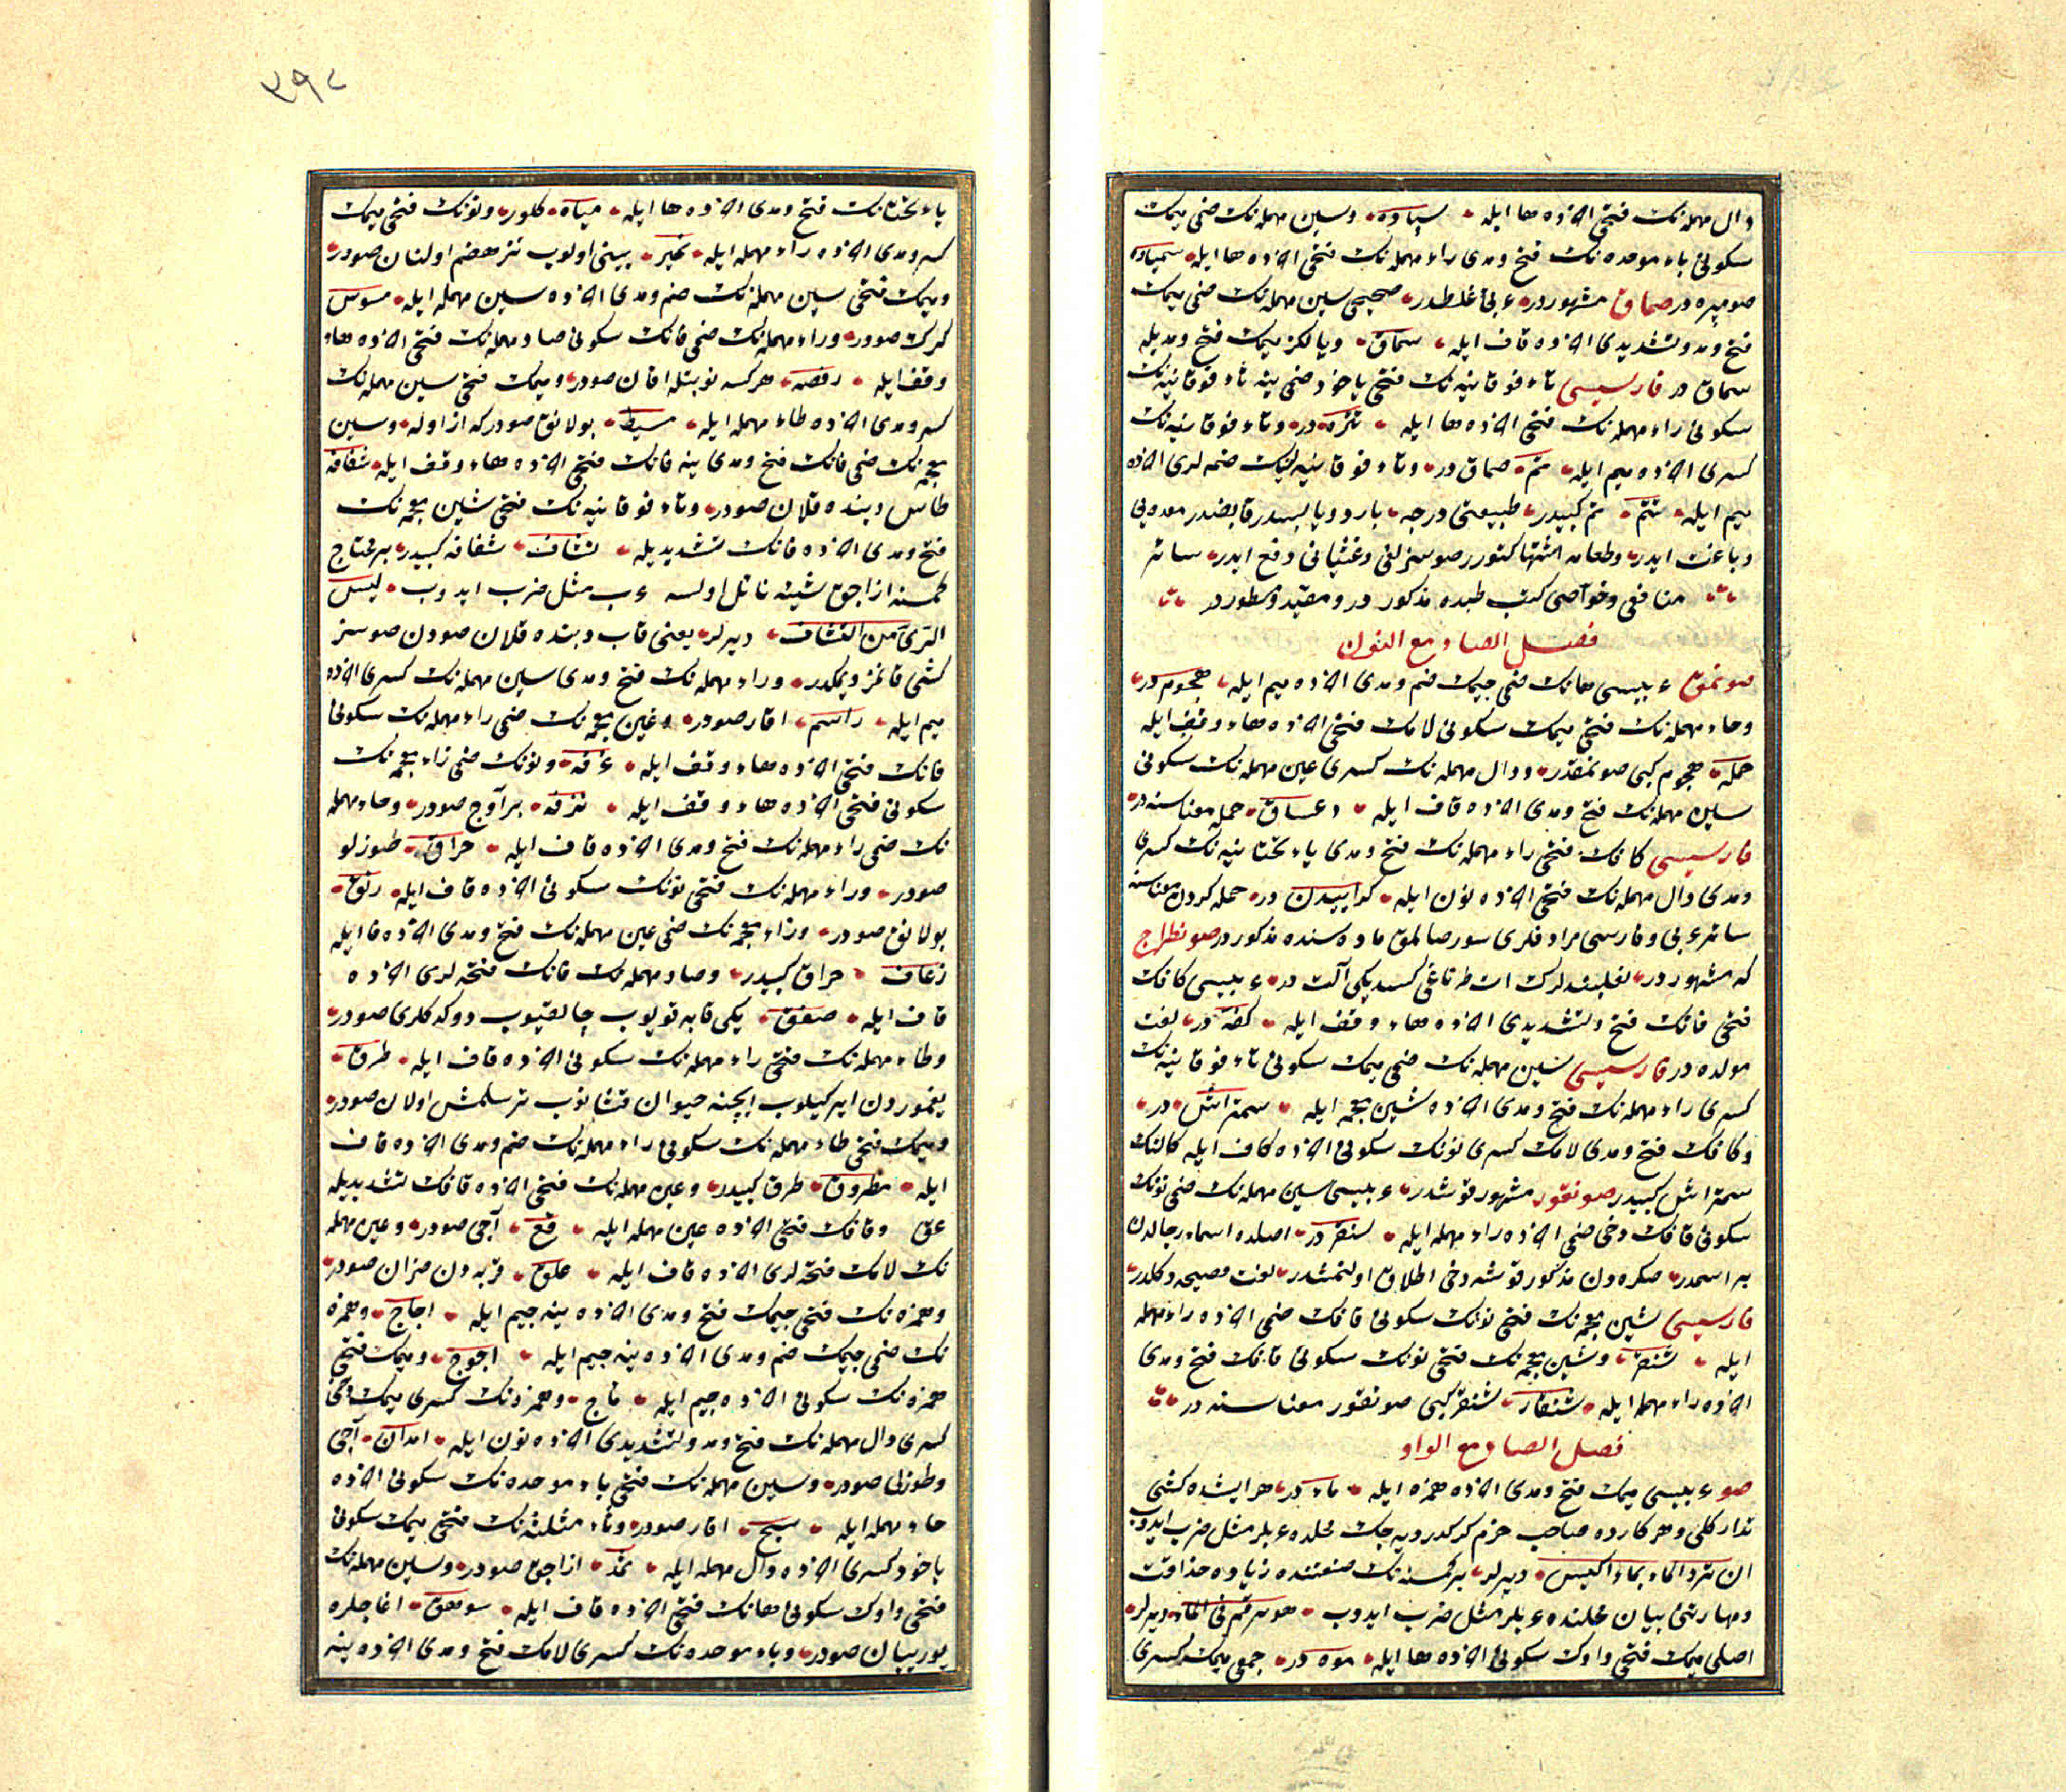 دال مهمله نك فتحى آخزده ها ايله سپاده وسين مهمله نك ضمى ميمك
سكونى باء موحده نك فتح ومدى راء مهمله نك فتحى آخرنده ها ايله
صوميره در صماق مشهوردر عربى غلطدر صحيحى سين مهمله نك ضمى ميمك
فتح ومد وتشديدى آخرنده قاف ايله سماق ويالكز ميمك فتح ومديله
سماق در فارسيسى تاء فوقانيه نك فتحى ياخود ضمى ينه تاء فوقانيه نك
سكونى راء مهمله نك فتحى آخرنده ها ايله تتره در وتاء فوقانيه نك
كسرى آخرنده ميم ايله تتم صماق در وتاء فوقانيه لرك ضمه لرى آخرنده
ميم ايله تتم تتم كبيدر طبيعتى درجه بارد ويابسدر قابضدر معده يى
دباغت ايدر وطعامه اشتها كتورر صوسزلغى وغثيانى دفع ايدر سائر
منافعى وخواصى كتب طبده مذكور در ومقيد ومسطوردر
فصل الصاد مع النون
صونمق عربيسى هانك ضمى جيمك ضم ومدى آخرنده ميم ايله هجوم در
وحاء مهمله نك فتحى ميمك سكونى لامك فتحى آخرنده هاء وقف ايله
حمله هجوم كبى صونمقدر ودال مهمله نك كسرى عين مهمله نك سكونى
سين مهمله نك فتح ومدى آخرنده قاف ايله دعساق حمله معناسنه در
فارسيسى كافك فتحى راء مهمله نك فتح ومدى ياء تحتانيه نك كسرى
ومدى دال مهمله نك فتحى آخرنده نون ايله كراييدن در حمله كردن معناسنه
سائر عربى وفارسى مرادفلرى سور صالمق ماده سنده مذكوردر صونطراج
كه مشهوردر نعلبندلرك ات طرناغى كسديكى آلت در عربيسى كافك
فتحى فانك فتح وتشديدى آخرنده هاء وقف ايله كفه در لغت
مولده در فارسيسى سين مهمله نك ضمى ميمك سكونى تاء فوقانيه نك
كسرى راء مهمله نك فتح ومدى آخرنده شين معجمه ايله سمتراش در
وكافك فتح ومدى لامك كسرى نونك سكونى آخرنده كاف ايله كالنك
سمتراش كبيدر صونقور مشهور قوشدر عربيسى سين مهمله نك ضمى نونك
سكونى قافك دخى ضمى آخرنده راء مهمله ايله سنقر در اصلده اسماء رجالدن
بر اسمدر صكره دن مذكور قوشه دخى اطلاق اولنمشدر لغت فصيحه دكلدر
فارسيسى شين معجمه نك فتحى نونك سكونى قافك ضمى آخرنده راء مهمله
ايله شنقر وشين معجمه نك فتحى نونك سكونى قافك فتح ومدى
آخرنده راء مهمله ايله شنقار شنقر كبى صونقور معناسنه در
فصل الصاد مع الواو
صو عربيسى ميمك فتح ومدى آخرنده همزه ايله ماء در هر ايشده كشى
تداركلى وهر كارده صاحب حزم كركدر ديه جك محلده عربلر مثل ضرب ايدوب
ان ترد الماء بماء اكيس ديرلر بر كمسنه نك صنعتنده زياده حذاقت
ومهارتنى بيان محلنده عربلر مثل ضرب ايدوب هو يرقم فى الماء ديرلر
اصلى ميمك فتحى واوك سكونى آخرنده ها ايله موه در جمعى ميمك كسرى
٣٩٢
ياء تحتانك فتح ومدى آخرنده ها ايله مياه كلور ونونك فتحى ميمك
كسر ومدى آخرنده راء مهمله ايله نمير يينى اولوب تيز هضم اولنان صودر
وميمك فتحى سين مهمله نك ضم ومدى آخرنده سين مهمله ايله مسوس
كرك صودر وراء مهمله نك ضمى فانك سكونى صاد مهمله نك فتحى آخرنده هاء
وقف ايله رفصه هر كسه نوبتله اقان صودر وميمك فتحى سين مهمله نك
كسر ومدى آخرنده طاء مهمله ايله مسيط بولانق صودر كه از اوله وسين
معجمه نك ضمى فانك فتح ومدى ينه فانك فتحى آخرنده هاء وقف ايله شفافه
طاس دبنده قلان صودر وتاء فوقانيه نك فتحى شين معجمه نك
فتح ومدى آخرنده فانك تشديديله تشاف شفافه كبيدر بر محتاج
كمسنه ازاجق شيئه نائل اولسه عرب مثل ضرب ايدوب ليس
الرى من التشاف ديرلر يعنى قاب دبنده قلان صودن صوسز
كشى قانمز ديمكدر وراء مهمله نك فتح ومدى سين مهمله نك كسرى آخرنده
ميم ايله راسم اقار صودر وغين معجمه نك ضمى راء مهمله نك سكونى
فانك فتحى آخرنده هاء وقف ايله غرفه ونونك ضمى زاء معجمه نك
سكونى فتحى آخرنده هاء وقف ايله نزفه بر آوج صودر وحاء مهمله
نك ضمى راء مهمله نك فتح ومدى آخرنده قاف ايله حراق طوزلو
صودر وراء مهمله نك فتحى نونك سكونى آخرنده قاف ايله رنق
بولانق صودر وزاء معجمه نك ضمى عين مهمله نك فتح ومدى آخرنده فا ايله
زعاف حراق كبيدر وصاد مهمله نك فانك فتحه لرى آخرنده
قاف ايله صفق يكى قابه قويوب چالقيوب دوكه كلرى صودر
وطاء مهمله نك فتحى راء مهمله نك سكونى آخرنده قاف ايله طرق
يغموردن ايركيلوب ايچنه حيوان قشانوب ترسلمش اولان صودر
وميمك فتحى طاء مهمله نك سكونى راء مهمله نك ضم ومدى آخرنده قاف
ايله مطروق طرق كبيدر وعين مهمله نك فتحى آخرنده قافك تشديديله
عق وقافك فتحى آخرنده عين مهمله ايله قع آجى صودر وعين مهمله
نك لامك فتحه لرى آخرنده قاف ايله علق قربه دن صزان صودر
وهمزه نك فتحى جيمك فتح ومدى آخرنده ينه جيم ايله اجاج وهمزه
نك ضمى جيمك ضم ومدى آخرنده ينه جيم ايله اجوج وميمك فتحى
همزه نك سكونى آخرنده جيم ايله مأج وهمزه نك كسرى ميمك دخى
كسرى دال مهمله نك فتح ومد وتشديدى آخرنده نون ايله امدان آجى
وطوزلى صودر وسين مهمله نك فتحى ياء موحده نك سكونى آخرنده
حاء مهمله ايله سيح اقار صودر وثاء مثلثه نك فتحى ميمك سكونى
ياخود كسرى آخرنده دال مهمله ايله ثمد ازاجق صودر وسين مهمله نك
فتحى واوك سكونى هانك فتحى آخرنده قاف ايله سوهق اغاجلره
يوريان صودر وباء موحده نك كسرى لامك فتح ومدى آخرنده ينه